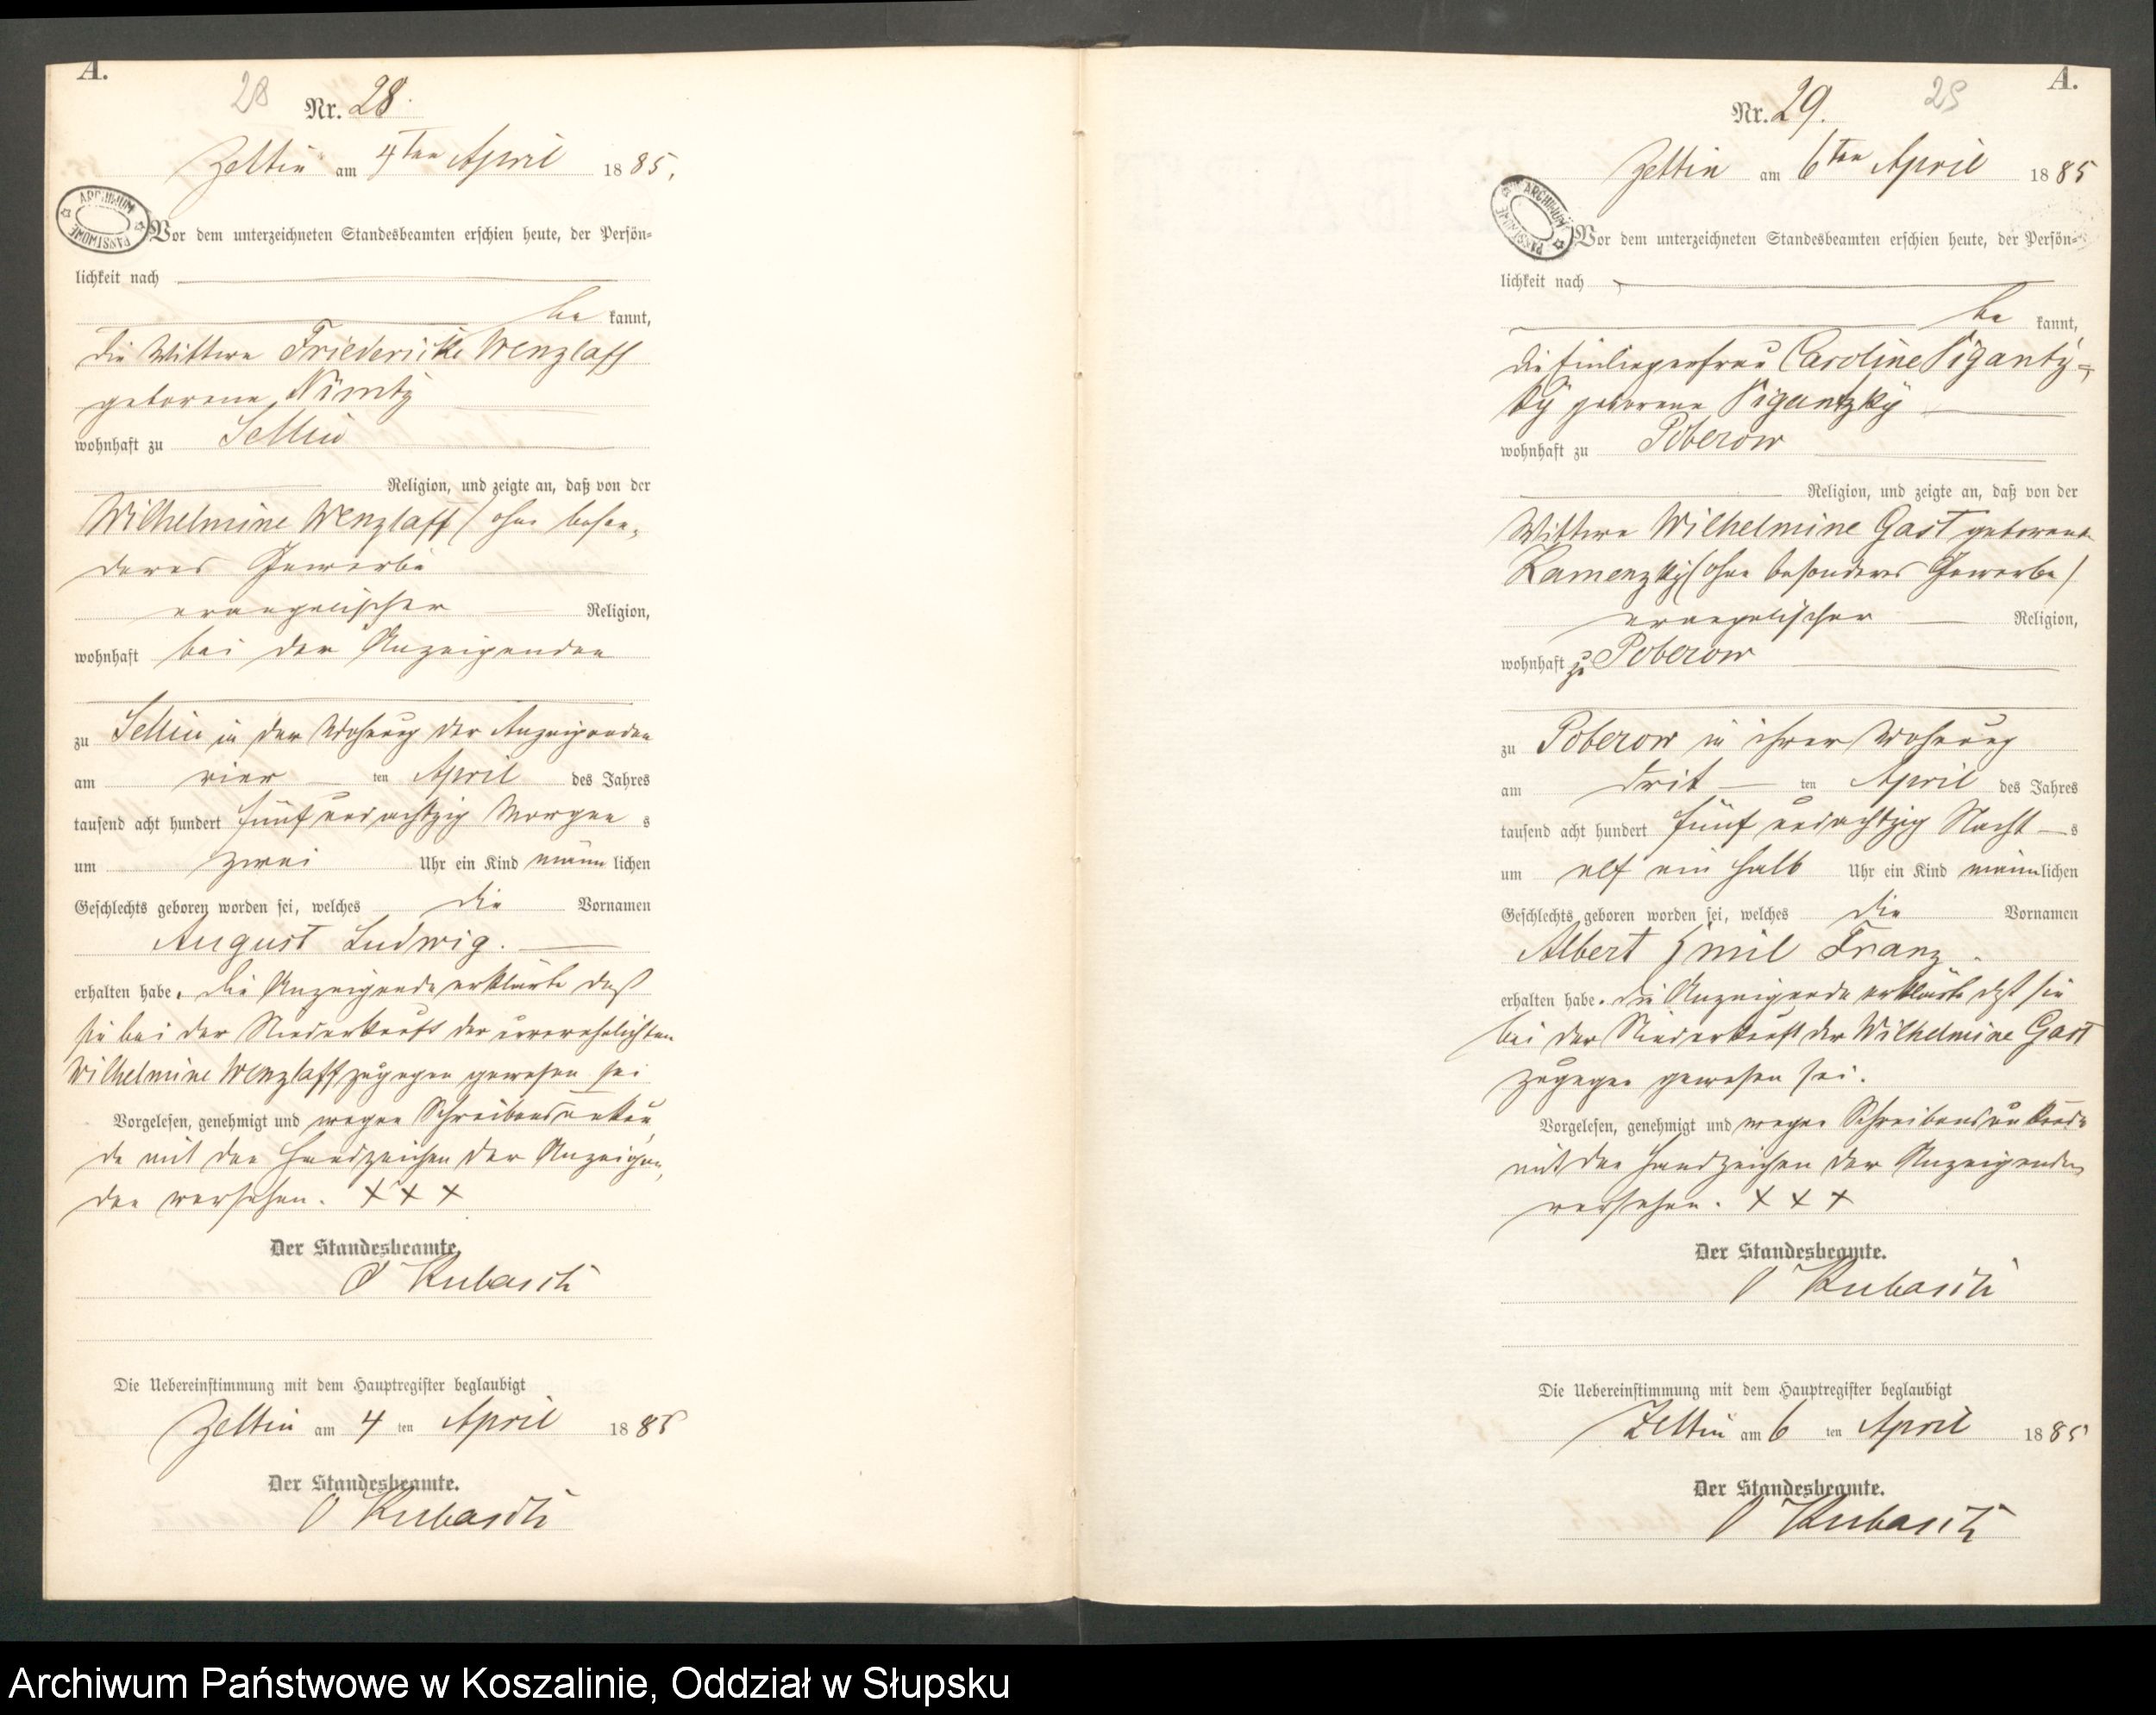 A.
28
Nr. 28.
Zettin am 4ten April 1885.
ARCHIWUM PAŃSTWOWE
Vor dem unterzeichneten Standesbeamten erschien heute, der Persön=
lichkeit nach
be kannt,
die Wittwe Friedericke Wenzlaff
geborene Nimtz
wohnhaft zu Sellin
Religion, und zeigte an, daß von der
Wilhelmine Wenzlaff / ohne beson-
deres Gewerbe
evangelischer Religion,
wohnhaft bei der Anzeigenden
zu Sellin in der Wohnung der Anzeigenden
am vier ten April des Jahres
tausend acht hundert fünf und achtzig Morgen s
um zwei Uhr ein Kind männ lichen
Geschlechts geboren worden sei, welches die Vornamen
August Ludwig.
erhalten habe. Die Anzeigende erklärte daß
sie bei der Niederkunft der unverehelichten
Wilhelmine Wenzlaff zugegen gewesen sei
Vorgelesen, genehmigt und wegen Schreibensunkun
de mit den Handzeichen der Anzeigen-
den versehen. + + +
Der Standesbeamte.
Die Uebereinstimmung mit dem Hauptregister beglaubigt
Zettin am 4 ten April 1885
Der Standesbeamte.
A.
29
Nr. 29.
Zettin am 6ten April 1885
ARCHIWUM PAŃSTWOWE
Vor dem unterzeichneten Standesbeamten erschien heute, der Persön=
lichkeit nach
be kannt,
die Einliegerfrau Caroline Pigantz-
ky geborene Pigantzky
wohnhaft zu Poberow
Religion, und zeigte an, daß von der
Wittwe Wilhelmine Gast geborene
Kamenzky / ohne besonderes Gewerbe /
evangelischer Religion,
wohnhaft zu Poberow
zu Poberow in ihrer Wohnung
am drit ten April des Jahres
tausend acht hundert fünf und achtzig Nacht s
um elf ein halb Uhr ein Kind männlichen
Geschlechts geboren worden sei, welches die Vornamen
Albert Emil Franz.
erhalten habe. Die Anzeigende erklärte daß sie
bei der Niederkunft der Wilhelmine Gast
zugegen gewesen sei.
Vorgelesen, genehmigt und wegen Schreibensunkunde
mit den Handzeichen der Anzeigenden
versehen. + + +
Der Standesbeamte.
Die Uebereinstimmung mit dem Hauptregister beglaubigt
Zettin am 6 ten April 1885
Der Standesbeamte.
Archiwum Państwowe w Koszalinie, Oddział w Słupsku